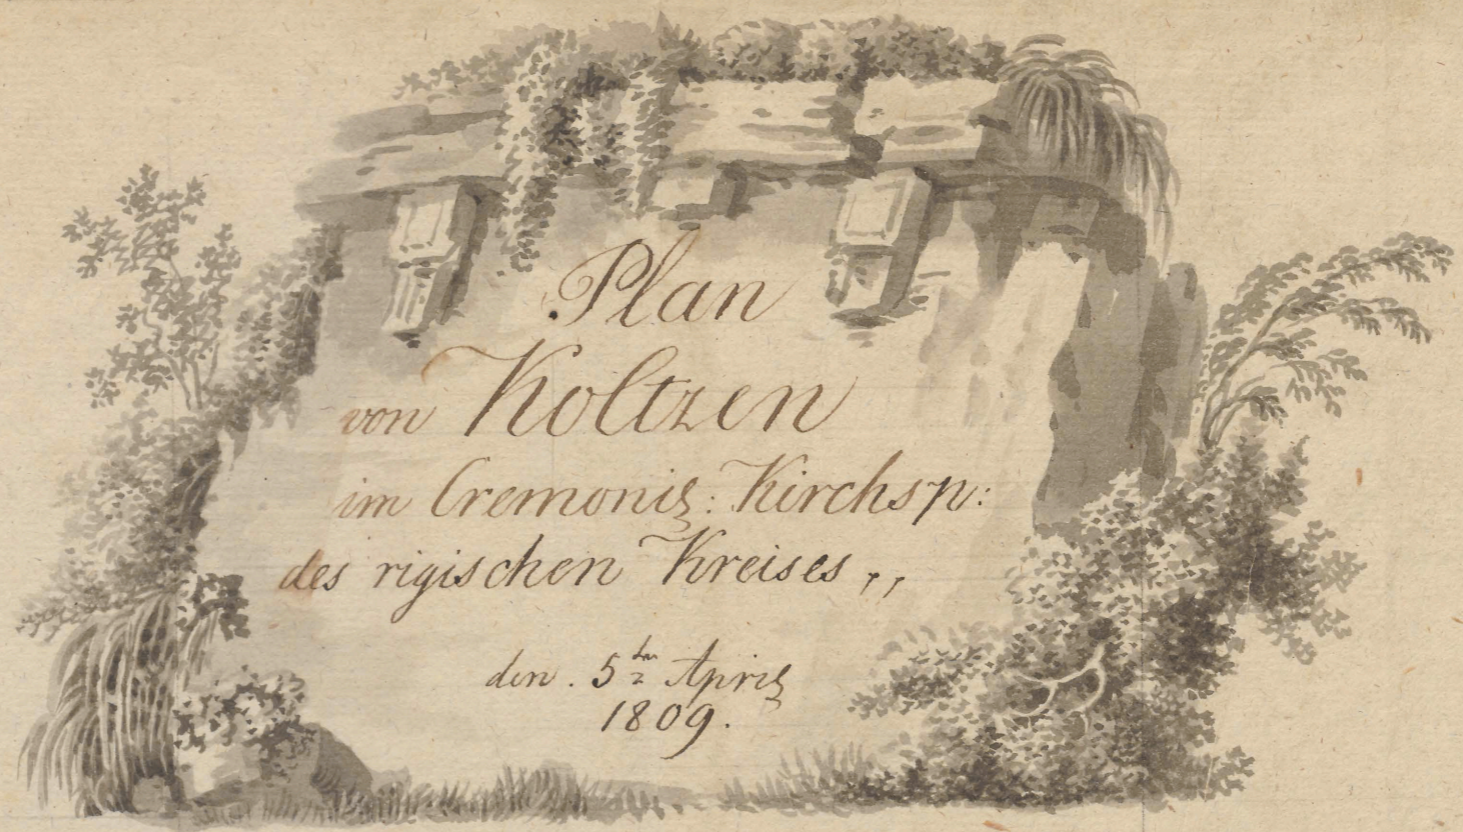 Plan
von Koltzen
im Cremonis: Kirchsp:
des rigischen Kreises „
den. 5ten April
1809.